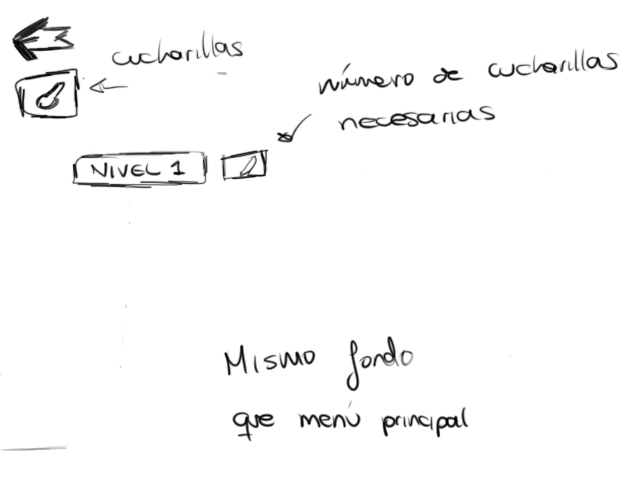 cucharillas
número de cucharillas
necesarias
NIVEL 1
Mismo fondo
que menú principal